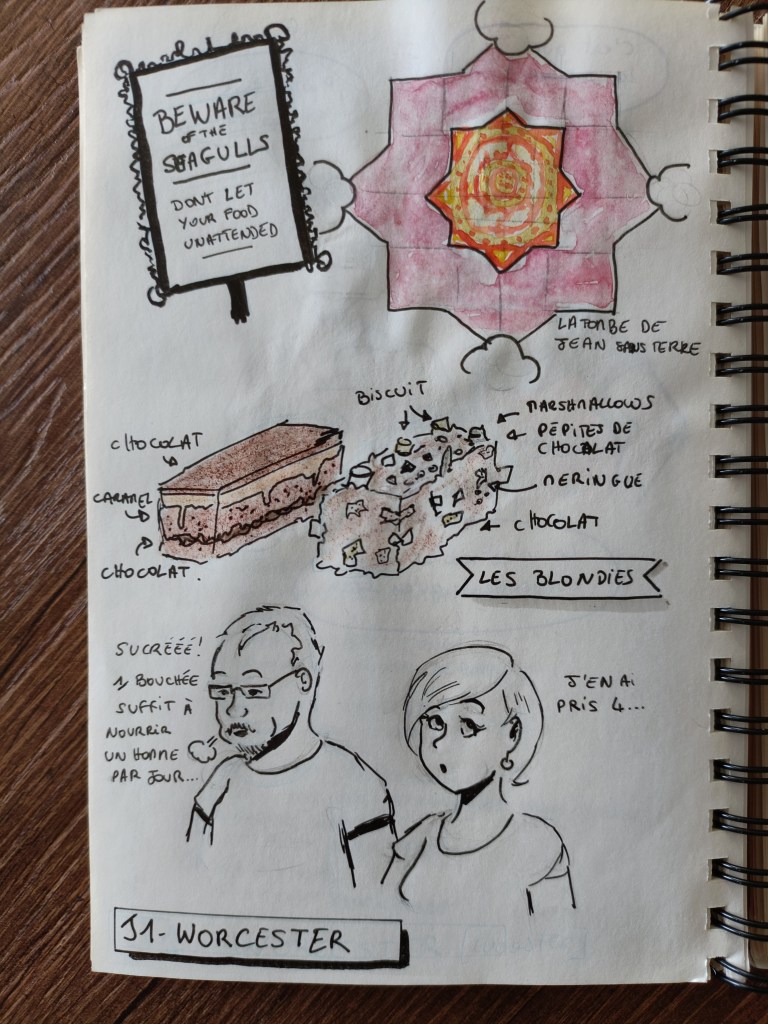 BEWARE
OF THE
SEAGULLS
DONT LET
YOUR FOOD
UNATTENDED
LA TOMBE DE
JEAN SANS TERRE
BISCUIT
MARSHMALLOWS
PEPITES DE
CHOCOLAT
MERINGUE
CHOCOLAT
CHOCOLAT
CARAMEL
CHOCOLAT.
LES BLONDIES
SUCRÉÉÉ!
1 BOUCHÉE
SUFFIT À
NOURRIR
UN HOMME
PAR JOUR...
J'EN AI
PRIS 4...
J1-WORCESTER